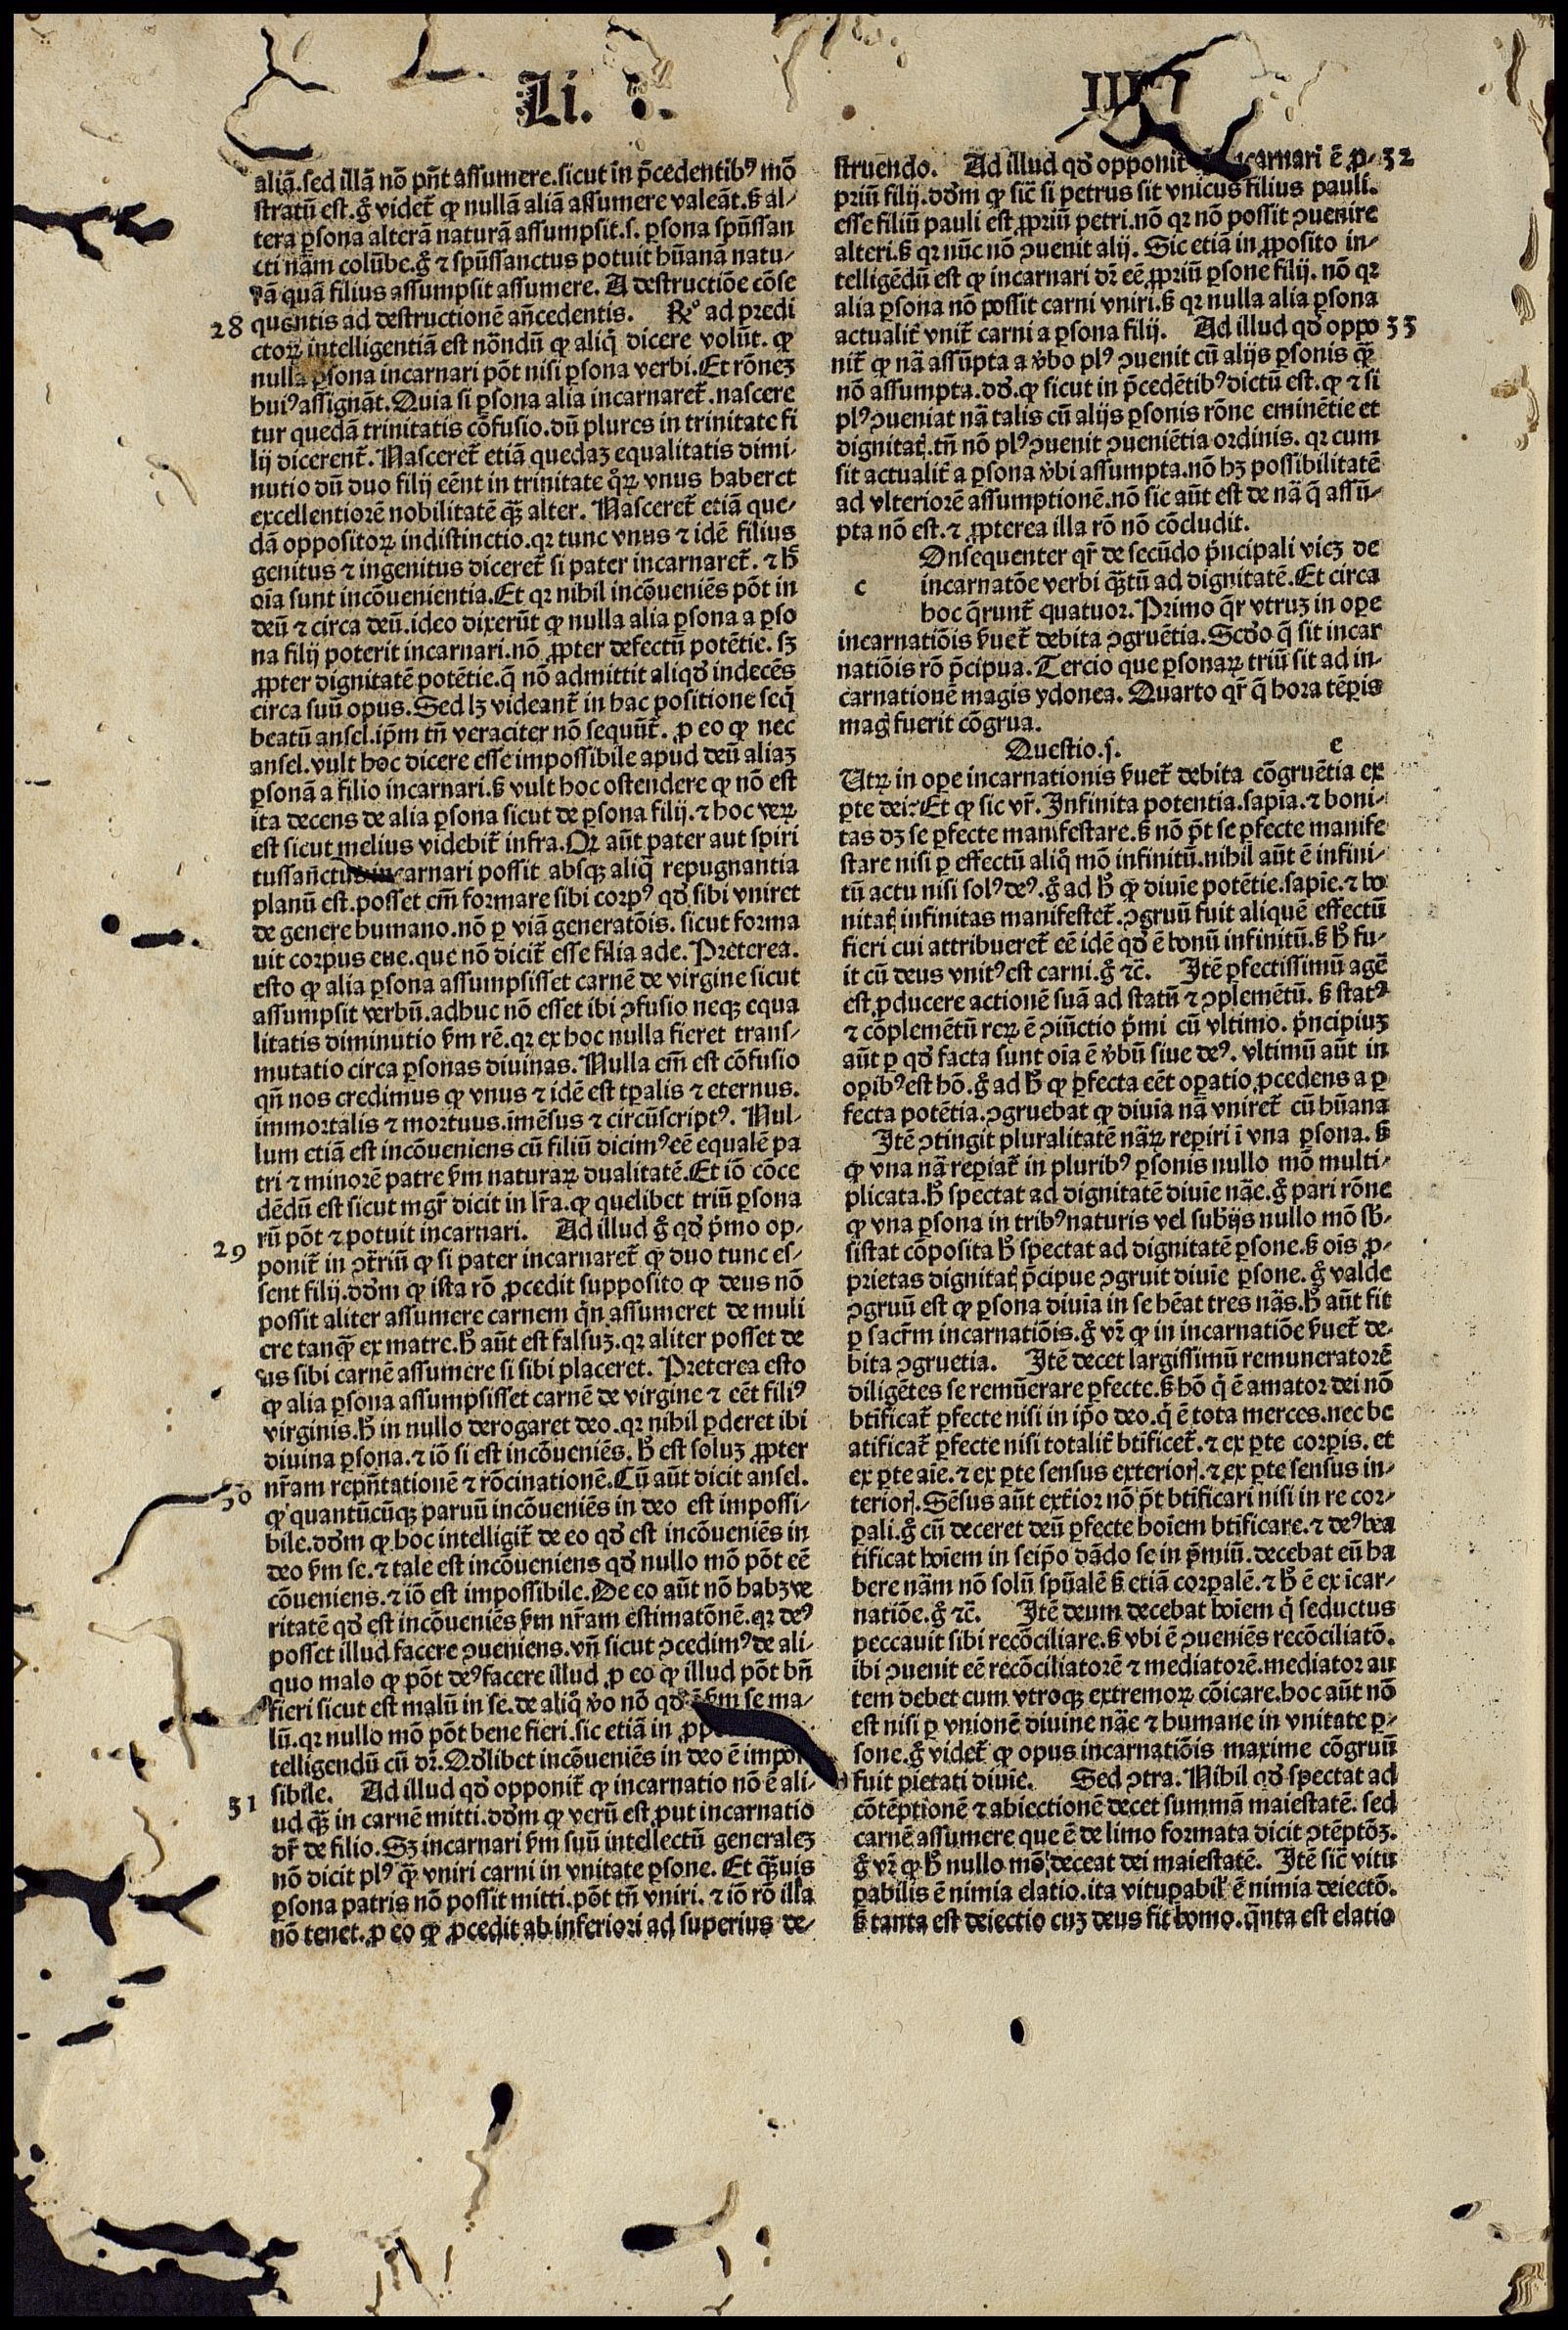 Li. III
aliā.sed illā nō pn̄t assumere.sicut in p̄cedentibꝰ mō
stratū est.gͦ videt̄ ꝙ nullā aliā assumere valeāt.sꝫ al-
tera ꝑsona alterā naturā assumpsit.s. ꝑsona spūssan
cti nām colūbe.gͦ ⁊ spūssanctus potuit hūanā natu-
rā quā filius assumpsit assumere. A destructiōe cōse
28 quentis ad destructionē an̄cedentis. ℞ͦ ad predi
ctoꝝ intelligentiā est nōndū ꝙ aliq̄ dicere volūt. ꝙ
nulla ꝑsona incarnari pōt nisi ꝑsona verbi.Et rōneꝫ
huiꝰ assignāt.Quia si ꝑsona alia incarnaret̄.nascere
tur quedā trinitatis cōfusio.dū plures in trinitate fi
lij dicerent̄.Nasceret̄ etiā quedaꝫ equalitatis dimi-
nutio dū duo filij eēnt in trinitate qͦꝝ vnus haberet
excellentiorē nobilitatē qꝫ̄ alter. Nasceret̄ etiā que-
dā oppositoꝝ indistinctio.qꝛ tunc vnus ⁊ idē filius
genitus ⁊ ingenitus diceret̄ si pater incarnaret̄. ⁊ hͦ
oīa sunt incōuenientia.Et qꝛ nihil incōueniēs pōt in
deū ⁊ circa deū.ideo dixerūt ꝙ nulla alia ꝑsona a ꝑso
na filij poterit incarnari.nō ꝓpter defectū potētie. sꝫ
ꝓpter dignitatē potētie.q̄ nō admittit aliqd̄ indecēs
circa suū opus.Sed lꝫ videant̄ in hac positione seqͥ
beatū ansel.ip̄m tn̄ veraciter nō sequūt̄. ꝓ eo ꝙ nec
ansel.vult hoc dicere esse impossibile apud deū aliaꝫ
ꝑsonā a filio incarnari.sꝫ vult hoc ostendere ꝙ nō est
ita decens de alia ꝑsona sicut de ꝑsona filij.⁊ hoc veꝝ
est sicut melius videbit̄ infra.Qꝛ aūt pater aut spiri
tussanctus incarnari possit absqꝫ aliq̄ repugnantia
planū est.posset em̄ formare sibi corpꝰ qd̄ sibi vniret
de genere humano.nō ꝑ viā generatōis. sicut forma
uit corpus eue.que nō dicit̄ esse filia ade. Preterea.
esto ꝙ alia ꝑsona assumpsisset carnē de virgine sicut
assumpsit verbū.adhuc nō esset ibi ꝯfusio neqꝫ equa
litatis diminutio ẜm rē.qꝛ ex hoc nulla fieret trans-
mutatio circa ꝑsonas diuinas. Nulla em̄ est cōfusio
qn̄ nos credimus ꝙ vnus ⁊ idē est tꝑalis ⁊ eternus.
immortalis ⁊ mortuus.īmēsus ⁊ circūscriptꝰ. Nul-
lum etiā est incōueniens cū filiū dicimꝰ eē equalē pa
tri ⁊ minorē patre ẜm naturaꝝ dualitatē.Et iō cōce
dēdū est sicut mgr̄ dicit in lr̄a.ꝙ quelibet triū ꝑsona
rū pōt ⁊ potuit incarnari. Ad illud gͦ qd̄ pͥmo op-
29 ponit̄ in ꝯtr̄iū ꝙ si pater incarnaret̄ ꝙ duo tunc es-
sent filij.dōm ꝙ ista rō ꝓcedit supposito ꝙ deus nō
possit aliter assumere carnem qͥn assumeret de muli
ere tanqꝫ̄ ex matre.hͦ aūt est falsuꝫ.qꝛ aliter posset de
us sibi carnē assumere si sibi placeret. Preterea esto
ꝙ alia ꝑsona assumpsisset carnē de virgine ⁊ eēt filiꝰ
virginis.hͦ in nullo derogaret deo.qꝛ nihil ꝑderet ibi
diuina ꝑsona.⁊ iō si est incōueniēs. hͦ est soluꝫ ꝓpter
nr̄am repn̄tationē ⁊ rōcinationē.Cū aūt dicit ansel.
30 ꝙ quantūcūqꝫ paruū incōueniēs in deo est impossi-
bile.dōm ꝙ hoc intelligit̄ de eo qd̄ est incōueniēs in
deo ẜm se.⁊ tale est incōueniens qd̄ nullo mō pōt eē
cōueniens.⁊ iō est impossibile.De eo aūt nō habꝫ ve
ritatē qd̄ est incōueniēs ẜm nr̄am estimatōnē.qꝛ deꝰ
posset illud facere ꝯueniens.vn̄ sicut ꝯcedimꝰ de ali-
quo malo ꝙ pōt deꝰ facere illud ꝓ eo ꝙ illud pōt bn̄
fieri sicut est malū in se.de aliq̄ v̄o nō qd̄ ē ẜm se ma-
lū.qꝛ nullo mō pōt bene fieri.sic etiā in
telligendū cū dr̄.Qd̄libet incōueniēs in deo ē impos
sibile. Ad illud qd̄ opponit̄ ꝙ incarnatio nō ē ali-
31 ud qꝫ̄ in carnē mitti.dōm ꝙ verū est ꝓut incarnatio
dr̄ de filio.Sꝫ incarnari ẜm suū intellectū generaleꝫ
nō dicit plꝰ qꝫ̄ vniri carni in vnitate ꝑsone. Et qꝫ̄uis
ꝑsona patris nō possit mitti.pōt tn̄ vniri. ⁊ iō rō illa
nō tenet.ꝓ eo ꝙ ꝓcedit ab inferiori ad superius de-
struendo. Ad illud qd̄ opponit incarnari ē ꝓ- 32
priū filij.dōm ꝙ sic̄ si petrus sit vnicus filius pauli.
esse filiū pauli est ꝓpriū petri.nō qꝛ nō possit ꝯuenire
alteri.sꝫ qꝛ nūc nō ꝯuenit alij. Sic etiā in ꝓposito in-
telligēdū est ꝙ incarnari dr̄ eē ꝓpriū ꝑsone filij. nō qꝛ
alia ꝑsona nō possit carni vniri.sꝫ qꝛ nulla alia ꝑsona
actualit̄ vnit̄ carni a ꝑsona filij. Ad illud qd̄ oppo 33
nit̄ ꝙ nā assūpta a v̄bo plꝰ ꝯuenit cū alijs ꝑsonis qꝫ̄
nō assumpta.dō.ꝙ sicut in p̄cedētibꝰ dictū est.ꝙ ⁊ si
plꝰ ꝯueniat nā talis cū alijs ꝑsonis rōne eminētie et
dignitatꝭ.tn̄ nō plꝰ ꝯuenit ꝯueniētia ordinis. qꝛ cum
sit actualit̄ a ꝑsona v̄bi assumpta.nō hꝫ possibilitatē
ad vlteriorē assumptionē.nō sic aūt est de nā q̄ assū-
pta nō est.⁊ ꝓpterea illa rō nō cōcludit.
Onsequenter qr̄ de secūdo pͥncipali vicꝫ de
c incarnatōe verbi qꝫ̄tū ad dignitatē.Et circa
hoc q̄runt̄ quatuor.Primo qͥr vtruꝫ in oꝑe
incarnatiōis fͥuet̄ debita ꝯgruētia.Scd̄o q̄ sit incar
natiōis rō p̄cipua.Tercio que ꝑsonaꝝ triū sit ad in-
carnationē magis ydonea. Quarto qr̄ q̄ hora tēꝑis
magꝭ fuerit cōgrua.
Questio.j. c
Utꝝ in oꝑe incarnationis fͥuet̄ debita cōgruētia ex
ꝑte dei:Et ꝙ sic vr̄. Infinita potentia.sapīa.⁊ boni-
tas dꝫ se ꝑfecte manifestare.sꝫ nō p̄t se ꝑfecte manife
stare nisi ꝑ effectū aliqͦ mō infinitū.nihil aūt ē infini-
tū actu nisi solꝰ deꝰ.gͦ ad hͦ ꝙ diuīe potētie.sapīe.⁊ bo
nitatꝭ infinitas manifestet̄.ꝯgruū fuit aliquē effectū
fieri cui attribueret̄ eē idē qd̄ ē bonū infinitū.sꝫ hͦ fu-
it cū deus vnitꝰ est carni.gͦ ⁊c̄. Itē ꝑfectissimū agē
est ꝓducere actionē suā ad statū ⁊ ꝯplemētū. sꝫ statꝰ
⁊ cōplemētū reꝝ ē ꝯiūctio pͥmi cū vltimo. pͥncipiuꝫ
aūt ꝑ qd̄ facta sunt oīa ē v̄bū siue deꝰ. vltimū aūt in
oꝑibꝰ est hō.gͦ ad hͦ ꝙ ꝑfecta eēt oꝑatio ꝓcedens a ꝑ
fecta potētia.ꝯgruebat ꝙ diuīa nā vniret̄ cū hūana
Itē ꝯtingit pluralitatē nāꝝ reꝑiri ī vna ꝑsona. sꝫ
ꝙ vna nā reꝑiat̄ in pluribꝰ ꝑsonis nullo mō multi-
plicata.hͦ spectat ad dignitatē diuīe nāe.gͦ pari rōne
ꝙ vna ꝑsona in tribꝰ naturis vel sub̄ijs nullo mō sb̄-
sistat cōposita hͦ spectat ad dignitatē ꝑsone.sꝫ oīs ꝓ-
prietas dignitatꝭ p̄cipue ꝯgruit diuīe ꝑsone. gͦ valde
ꝯgruū est ꝙ ꝑsona diuīa in se hēat tres nās.hͦ aūt fit
ꝑ sacr̄m incarnatiōis.gͦ vr̄ ꝙ in incarnatiōe fͥuet̄ de-
bita ꝯgruetia. Itē decet largissimū remuneratorē
diligētes se remūerare ꝑfecte.sꝫ hō qͥ ē amator dei nō
btīficat̄ ꝑfecte nisi in ip̄o deo.qͥ ē tota merces.nec be
atificat̄ ꝑfecte nisi totalit̄ btīficet̄.⁊ ex ꝑte corꝑis. et
ex ꝑte aīe.⁊ ex ꝑte sensus exteriorꝭ.⁊ ex ꝑte sensus in-
teriorꝭ.Sēsus aūt ext̄ior nō p̄t btīficari nisi in re cor-
ꝑali.gͦ cū deceret deū ꝑfecte hoīem btīficare.⁊ deꝰ bea
tificat hoīem in seip̄o dādo se in p̄miū.decebat eū ha
bere nām nō solū spūalē sꝫ etiā corꝑalē.⁊ hͦ ē ex īcar-
natiōe.gͦ ⁊c̄. Itē deum decebat hoīem qͥ seductus
peccauit sibi recōciliare.sꝫ vbi ē ꝯueniēs recōciliatō.
ibi ꝯuenit eē recōciliatorē ⁊ mediatorē.mediator au
tem debet cum vtroqꝫ extremoꝝ cōicare.hoc aūt nō
est nisi ꝑ vnionē diuine nāe ⁊ humane in vnitate ꝑ-
sone.gͦ videt̄ ꝙ opus incarnatiōis maxime cōgruū
fuit pietati diuīe. Sed ꝯtra.Nihil qd̄ spectat ad
cōtēptionē ⁊ abiectionē decet summā maiestatē. sed
carnē assumere que ē de limo formata dicit ꝯtēptōꝫ.
gͦ vr̄ ꝙ hͦ nullo mō deceat dei maiestatē. Itē sic̄ vitu
ꝑabilis ē nimia elatio.ita vituꝑabil̄ ē nimia deiectō.
sꝫ tanta est deiectio cuꝫ deus fit homo.qͣnta est elatio